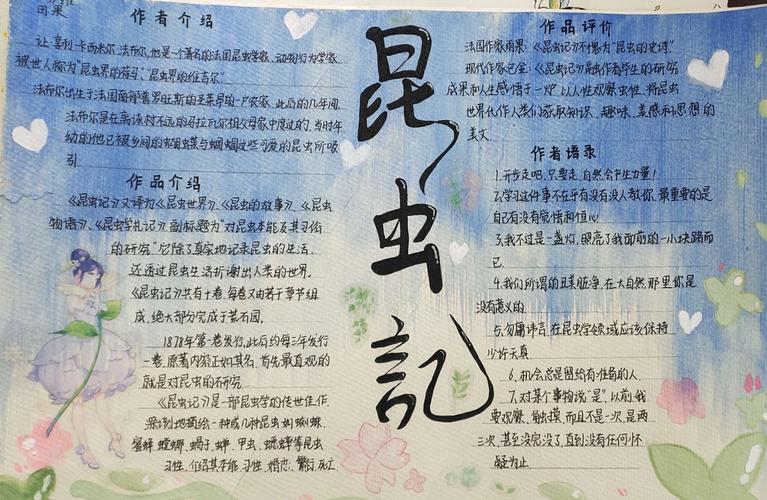 田果
作者介绍
让·亨利·卡西米尔·法布尔,他是一个著名的法国昆虫学家、动物行为学家
被世人称为"昆虫界的荷马","昆虫界的维吉尔"
法布尔出生于法国南部普罗旺斯的圣莱昂的一户农家,此后的几年间
法布尔是在离该村不远的马拉瓦尔祖父母家中度过的,当时年
幼的他已被乡间的蝴蝶与蝈蝈这些可爱的昆虫所吸
引.
作品介绍
《昆虫记》又译为《昆虫世界》、《昆虫的故事》、《昆虫
物语》、《昆虫学札记》,副标题为"对昆虫本能及其习俗
的研究".它除了真实地记录昆虫的生活,
还透过昆虫生活折射出人类的世界。
《昆虫记》共有十卷,每卷又由若干章节组
成,绝大部分完成于荒石园。
1878年第一卷发行,此后约每三年发行
一卷.原著内容正如其名,首先最直观的
就是对昆虫的研究
《昆虫记》是一部昆虫学的传世佳作,
深刻地描绘一种或几种昆虫如蜘蛛、
蜜蜂、螳螂、蝎子、蝉、甲虫、蟋蟀等昆虫
习性,介绍其本能、习性、婚恋、繁衍、死亡
昆虫記
作品评价
法国作家雨果:《昆虫记》不愧为"昆虫的史诗"
现代作家巴金:《昆虫记》融作者毕生的研究
成果和人生感悟于一炉,以人性观察虫性,将昆虫
世界化作人类们获取知识、趣味、美感和思想的
美文
作者语录
1.开步走吧,只要走,自然会产生力量!
2.学习这件事不在乎有没有没人教你,最重要的是
自己有没有觉悟和恒心
3.我不过是一盏灯,照亮了我面前的一小块路而
已
4.我们所谓的丑美脏净,在大自然那里你是
没有意义的
5.勿庸讳言,在昆虫学领域应该保持
少许天真
6.机会总是留给有准备的人.
7.对某个事物说"是",以前,我
要观察、触摸,而且不是一次,是两
三次,甚至没完没了,直到没有任何怀
疑为止.